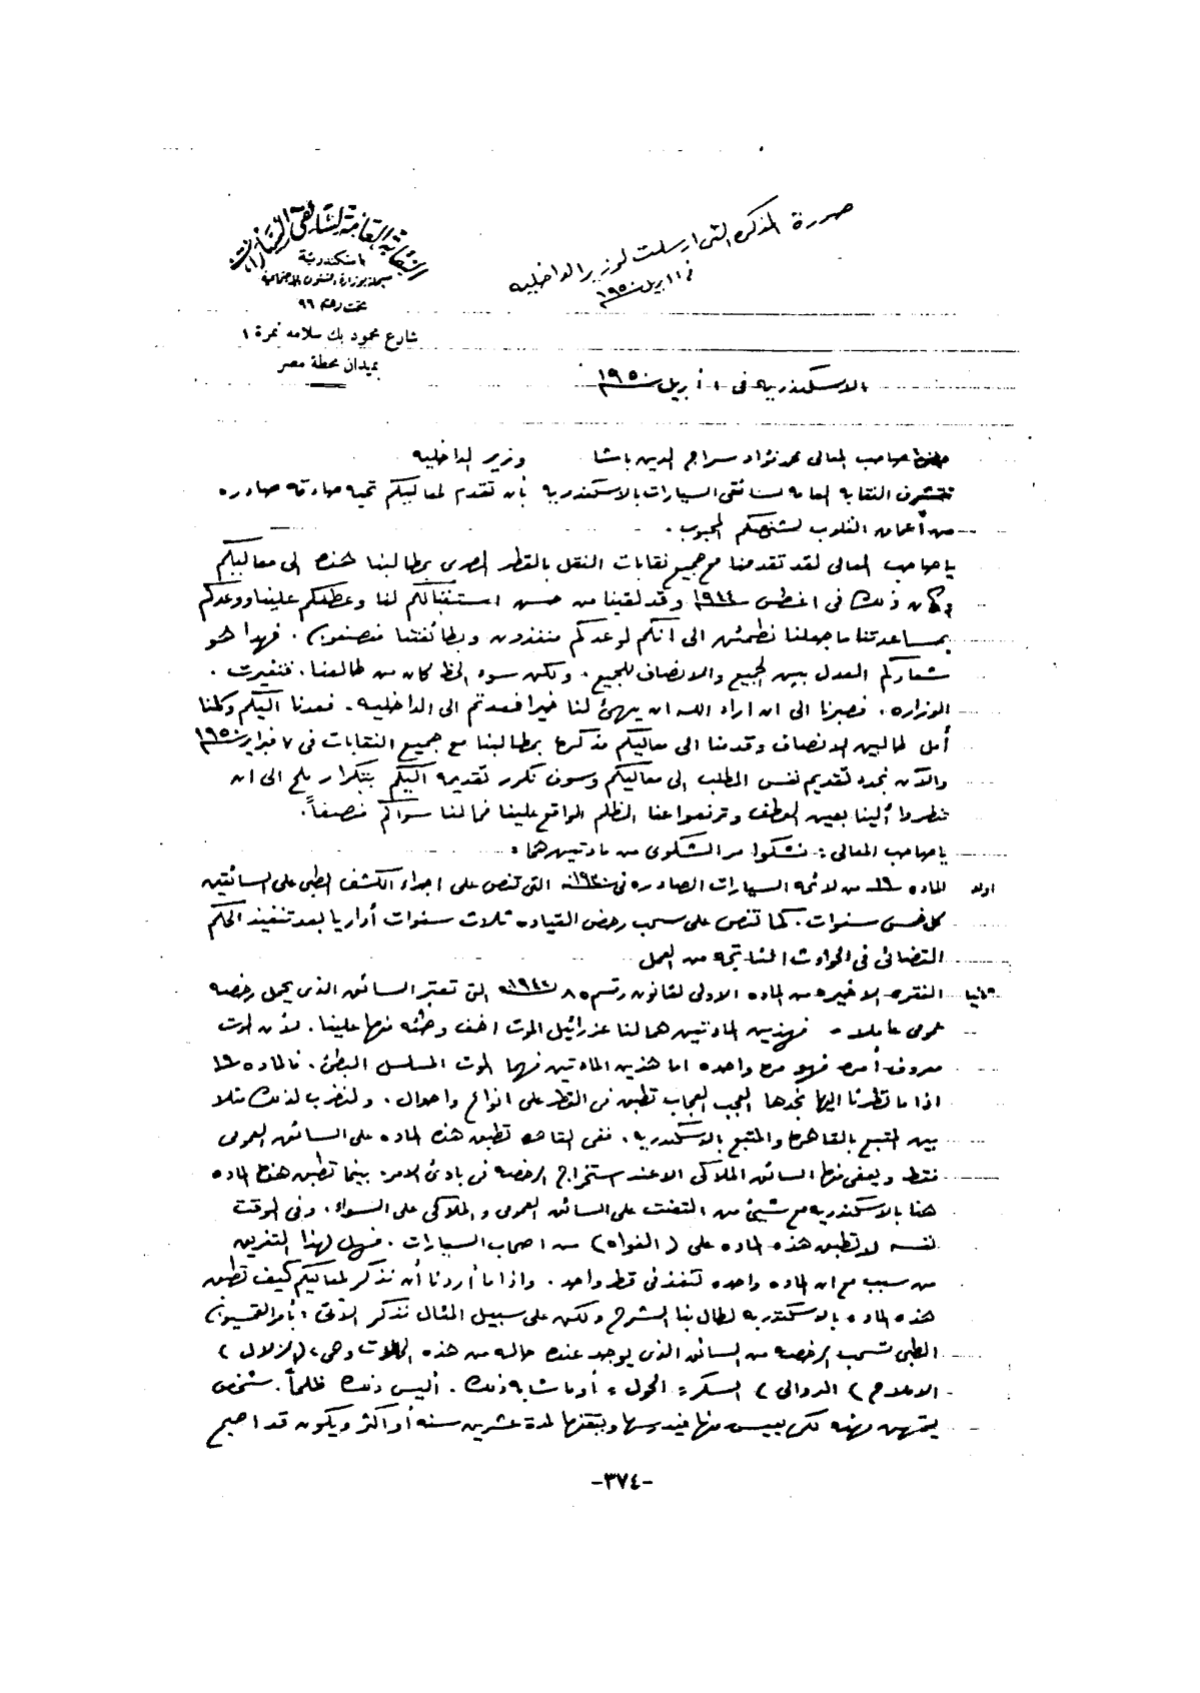 صورة المذكره التى ارسلت لوزير الداخليه
فى ١١ ابريل ١٩٥٠
النقابة العامة لسائقى السيارات
باسكندرية
مسجلة بوزارة الشئون الاجتماعية
تحت رقم ٩٦
شارع محمود بك سلامه نمرة ١
بميدان محطة مصر
بالاسكندريه فى ١١ أبريل ١٩٥٠
صاحب المعالى محمد فؤاد سراج الدين باشا وزير الداخليه
تتشرف النقابه العامه لسائقى السيارات بالاسكندريه بأن تقدم لمعاليكم تحيه صادقه صادره
من أعماق القلوب لشخصكم المحبوب.
يا صاحب المعالى لقد تقدمنا مع جميع نقابات النقل بالقطر المصرى بمطالبنا هذه الى معاليكم
وكان ذلك فى اغسطس وقد لقينا من حسن استقبالكم لنا وعطفكم علينا ووعدكم
بمساعدتنا ما جعلنا نطمئن الى انكم لوعدكم منفذون وبطائفتنا منصفون. فهذا هو
شعاركم العدل بين الجميع والانصاف للجميع. ولكن سوء الحظ كان من طالعنا. فتغيرت.
الوزاره. فصبرنا الى ان اراد الله ان يهيئ لنا خيرا فعدتم الى الداخليه. فعدنا اليكم وكلنا
أمل طالبين الانصاف وقدمنا الى معاليكم مذكره بمطالبنا مع جميع النقابات فى ٧ فبراير ١٩٥٠
والآن نجدد تقديم نفس المطلب الى معاليكم وسوف نكرر تقديمه اليكم بتكرار ملح الى ان
تنظروا ألينا بعين العطف وترفعوا عنا الظلم الواقع علينا فما لنا سواكم منصفاً.
يا صاحب المعالى: نشكوا مر الشكوى من مادتين هما:
اولا الماده ١٦ من لائحه السيارات الصادره فى التى تنص على اجراء الكشف الطبى على السائقين
كل خمس سنوات. كما تنص على سحب رخص القياده ثلاث سنوات أداريا بعد تنفيذ الحكم
القضائى فى الحوادث الناتجه من العمل
ثانيا الفقره الاخيره من الماده الاولى لقانون رقم ٨٥ التى تعتبر السائق الذى يحمل رخصه
عمومى عاملا - فهذين المادتين هما لنا عزرائيل الموت اخف وطئه منها علينا. لأن الموت
معروف أمره فهو مره واحده اما هذين المادتين فهما الموت المسلسل البطئ. فالماده ١٦
اذا ما نظرنا اليها نجدها العجب العجاب تطبق فى القطر على انواع واحوال. ولنضرب لذلك مثلا
بين المتبع بالقاهره والمتبع بالاسكندريه. ففى القاهره تطبق هذه الماده على السائق العمومى
فقط ويعفى منها السائق الملاكى الا عند استخراج الرخصه فى بادئ الامر. بينما تطبق هذه الماده
هنا بالاسكندريه مع شيئ من التعنت على السائق العمومى والملاكى على السواء. وفى الوقت
نفسه لا تطبق هذه الماده على (الغواه) من اصحاب السيارات. فهل لهذا التفريق
من سبب مع ان الماده واحده تنفذ فى قطر واحد. واذا ما أردنا أن نذكر لمعاليكم كيف تطبق
هذه الماده بالاسكندريه لطال بنا الشرح ولكن على سبيل المثال نذكر الآتى: يأمر القمسيون
الطبى بسحب الرخصه من السائق الذى يوجد عنده حاله من هذه الحالات وهى: (الزلال)
الاملاح) الدوالى) السكر: الحول: أو ما شابه ذلك. أليس ذلك ظلماً. شخص
يمتهن مهنه لكى يعيش منها فيدرسها ويتقنها لمدة عشرين سنه أو اكثر ويكون قد اصبح
-٣٧٤-